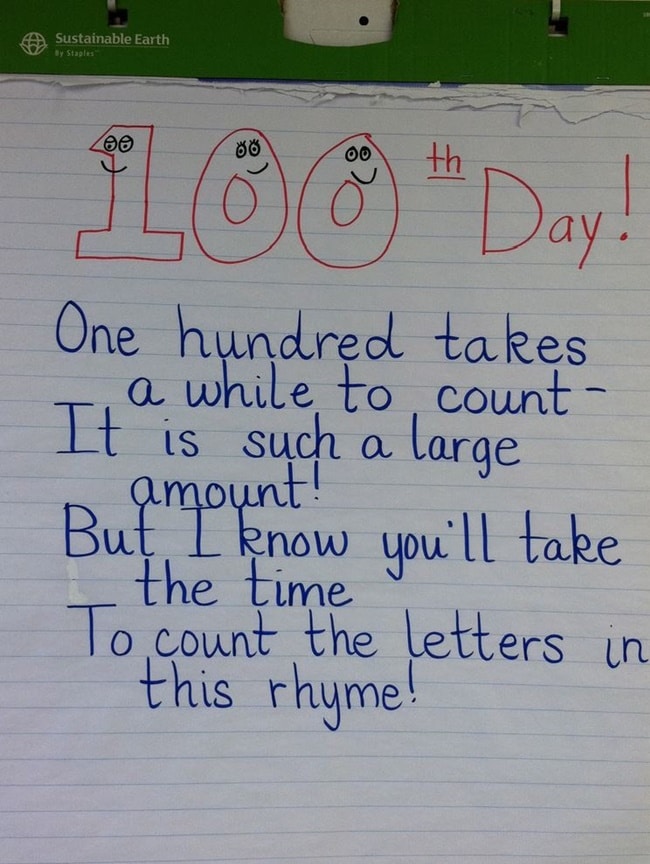 Sustainable Earth
By Staples™
100th Day!
One hundred takes
a while to count-
It is such a large
amount!
But I know you'll take
the time
To count the letters in
this rhyme!